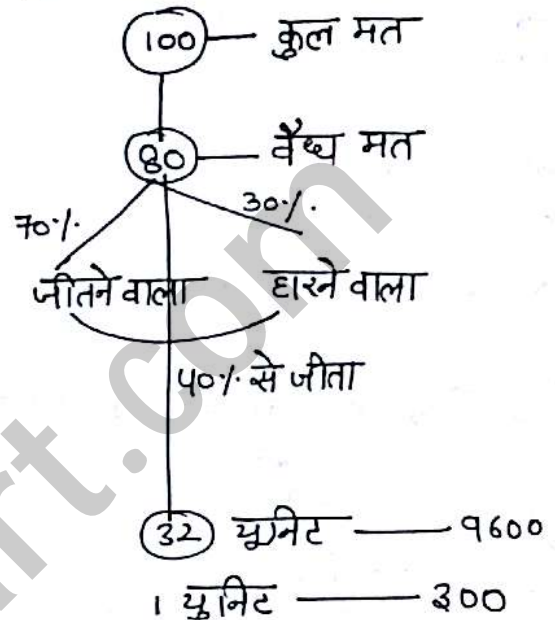 100 — कुल मत
80 — वैध्य मत
70% 30%
जीतने वाला हारने वाला
40% से जीता
32 यूनिट — 9600
1 युनिट — 300
rt.com